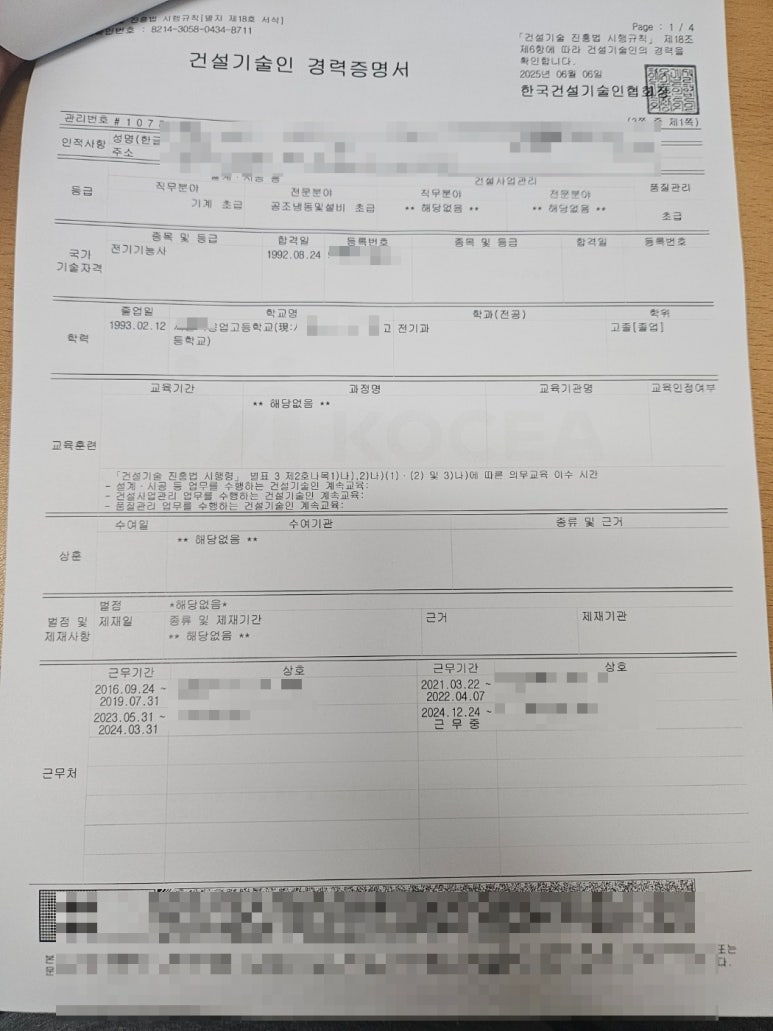 진흥법 시행규칙[별지 제18호 서식]
확인번호 : 8214-3058-0434-8711
Page : 1 / 4
「건설기술 진흥법 시행규칙」 제18조
제6항에 따라 건설기술인의 경력을
확인합니다.
2025년 06월 06일
한국건설기술인협회장
건설기술인 경력증명서
관리번호 # 107
제1쪽)
인적사항 성명(한글
주소
등급
설계·시공 등
건설사업관리
품질관리
직무분야 전문분야 직무분야 전문분야
기계 초급 공조냉동및설비 초급 ** 해당없음 ** ** 해당없음 ** 초급
국가
기술자격
종목 및 등급 합격일 등록번호 종목 및 등급 합격일 등록번호
전기기능사 1992.08.24
학력
졸업일 학교명 학과(전공) 학위
1993.02.12 업고등학교(現: 고 전기과 고졸[졸업]
등학교)
교육훈련
교육기간 과정명 교육기관명 교육인정여부
** 해당없음 **
KOCEA
「건설기술 진흥법 시행령」 별표 3 제2호나목1)나),2)나)(1)·(2) 및 3)나)에 따른 의무교육 이수 시간
- 설계·시공 등 업무를 수행하는 건설기술인 계속교육:
- 건설사업관리 업무를 수행하는 건설기술인 계속교육:
- 품질관리 업무를 수행하는 건설기술인 계속교육:
상훈
수여일 수여기관 종류 및 근거
** 해당없음 **
벌점 및
제재사항
벌점 *해당없음*
제재일 종류 및 제재기간 근거 제재기관
** 해당없음 **
근무처
근무기간 상호 근무기간 상호
2016.09.24 ~
2019.07.31
2021.03.22 ~
2022.04.07
2023.05.31 ~
2024.03.31
2024.12.24 ~
근 무 중
본
또는
다.